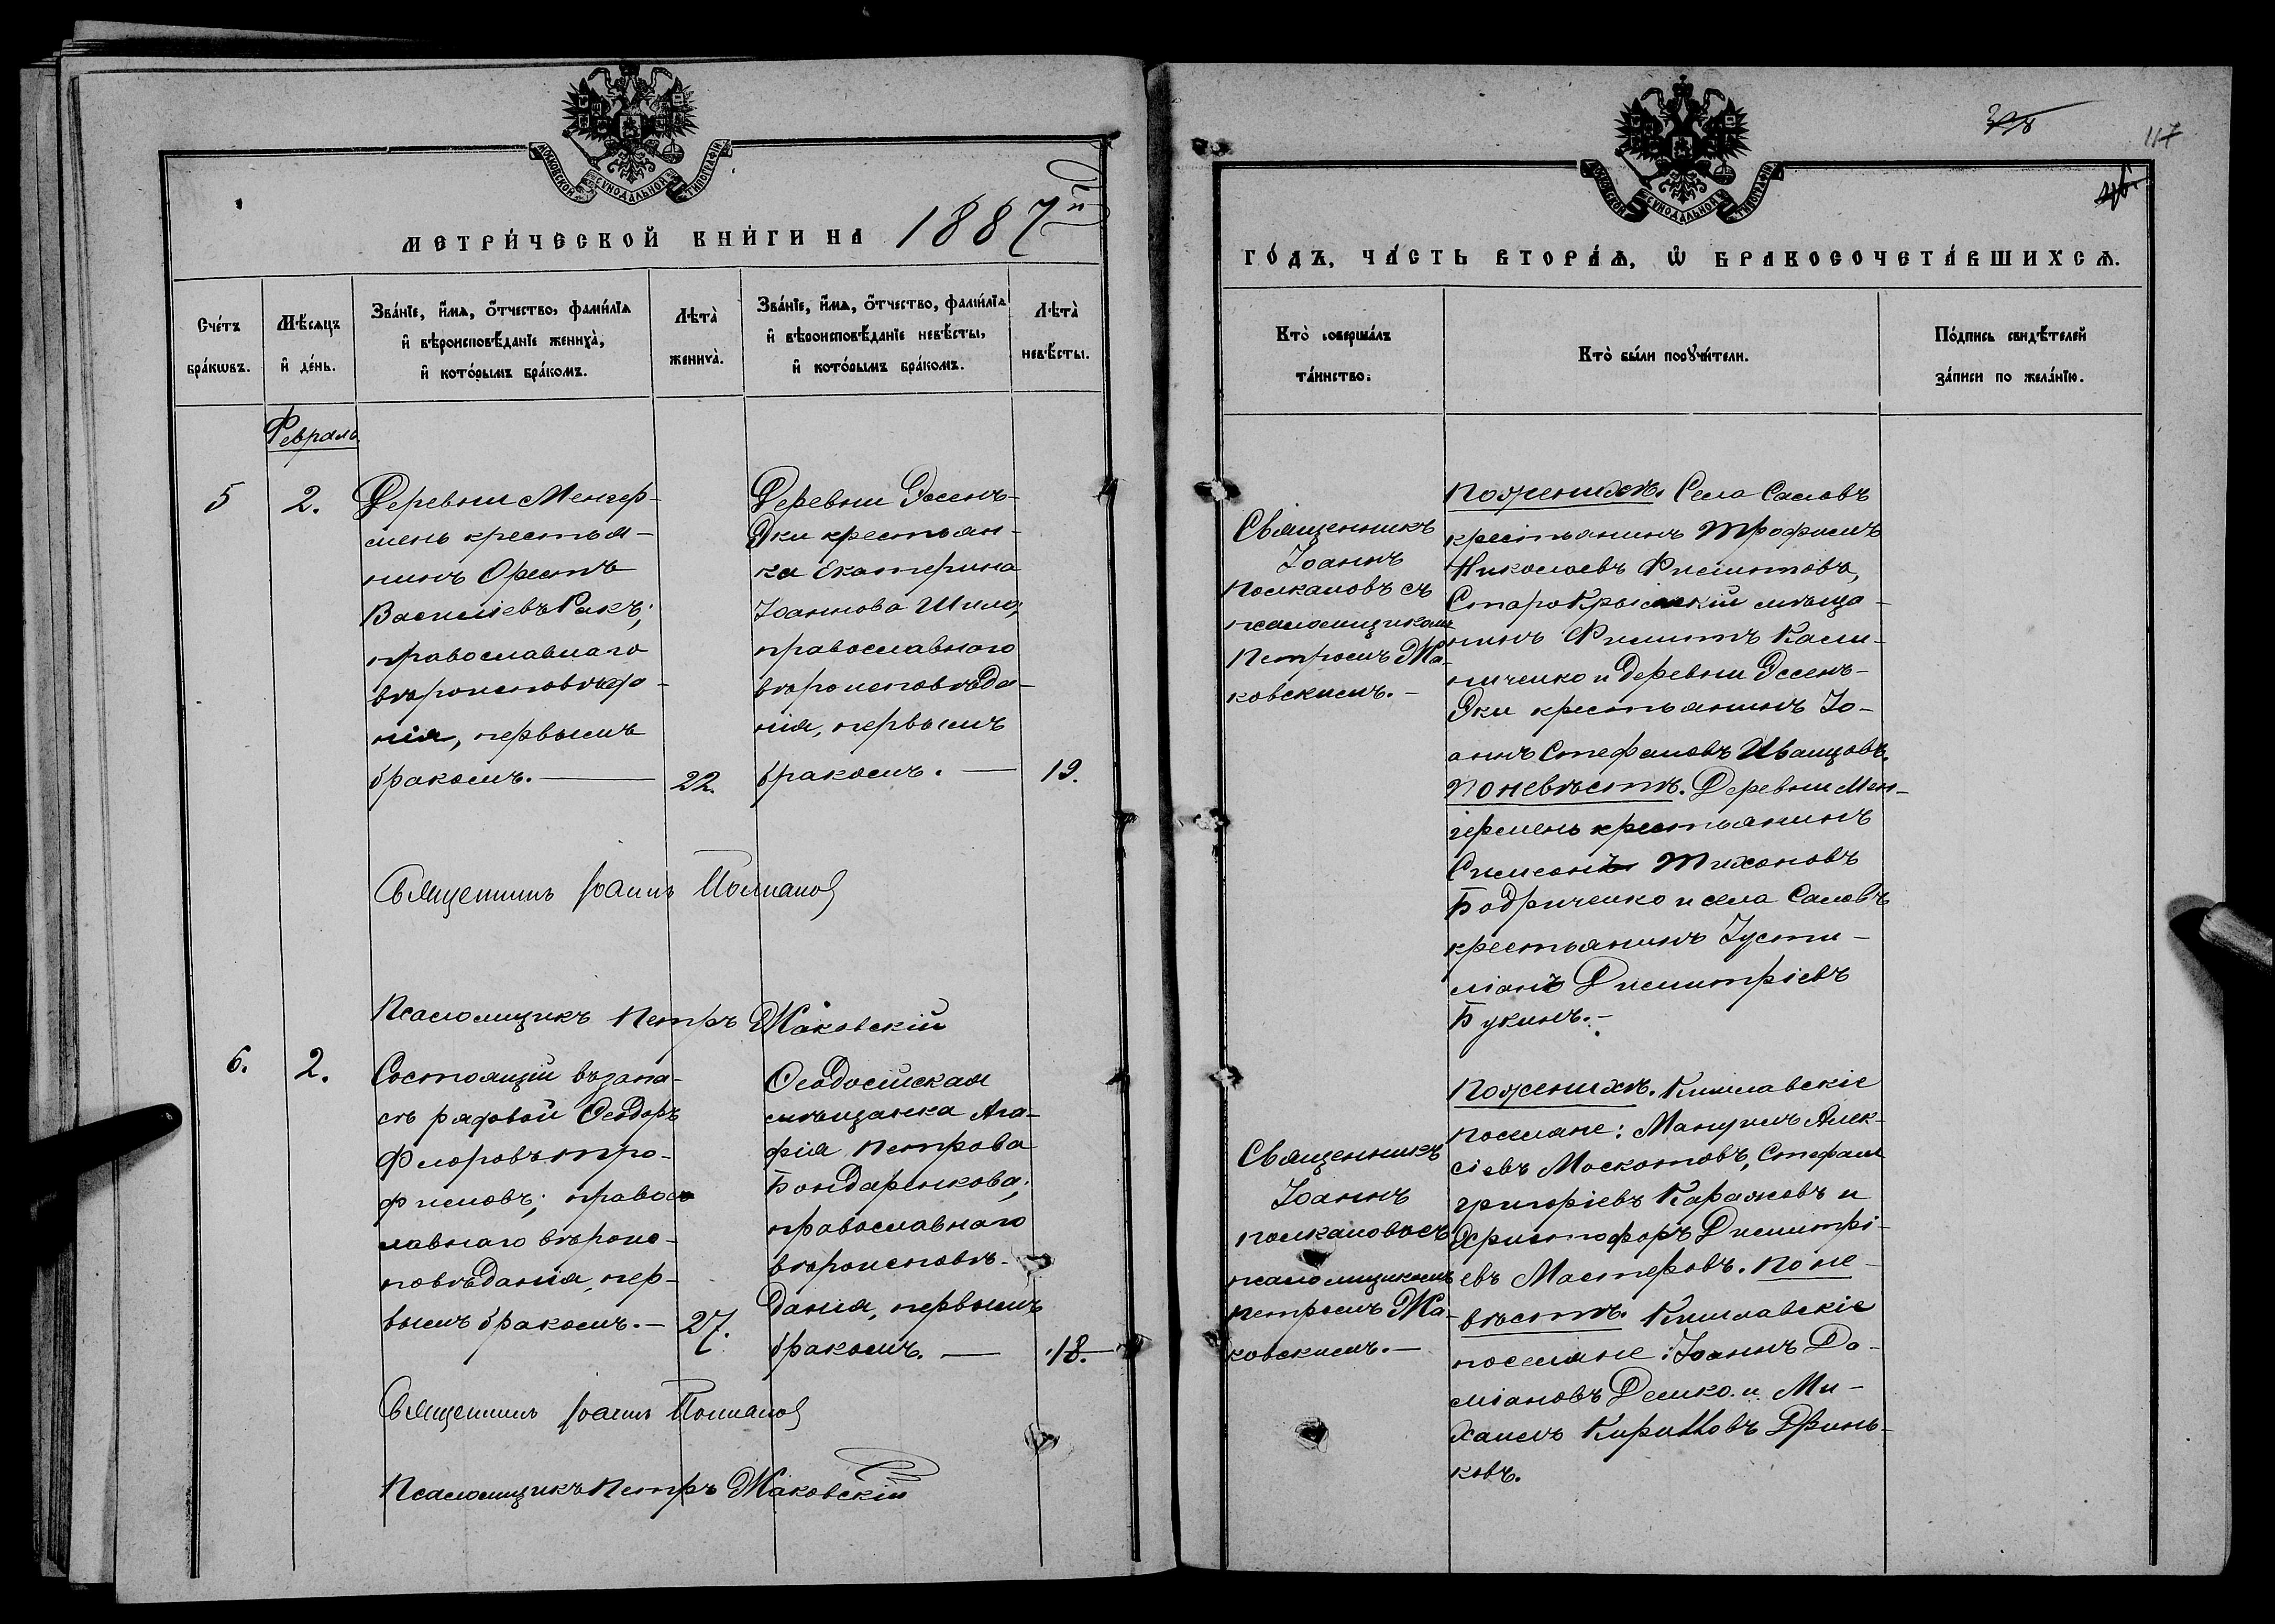 МОСКОВСКОЙ СѴНОДАЛЬНОЙ ТИПОГРАФІИ
МЕТРИ́ЧЕСКОЙ КНИ́ГИ НА 1887й
Сче́тъ бра́кѡвъ.
Мѣ́сяцъ и҆ де́нь.
Зва́нїе, и҆́мѧ, ѻ҆́тчество, фами́лїѧ
и҆ вѣроисповѣ́данїе жениха̀,
и҆ кото́рымъ бра́комъ.
Лѣта̀
жениха̀.
Зва́нїе, и҆́мѧ, ѻ҆́тчество, фами́лїѧ
и҆ вѣроисповѣ́данїе невѣ́сты,
и҆ кото́рымъ бра́комъ.
Лѣта̀
невѣ́сты.
Февраль
5
2.
Деревни Менгер-
мень крестья-
нинъ Орестъ
Василіевъ Ракъ;
православнаго
вѣроисповѣда-
нія, первымъ
бракомъ.
22.
Деревни Эссенъ-
Эки крестьян-
ка Екатерина
Іоаннова Шило;
православнаго
вѣроисповѣда-
нія, первымъ
бракомъ.
19.
Священникъ Іоаннъ Полканов
Псаломщикъ Петръ Жаковскій
6.
2.
Состоящій въ запа-
сѣ рядовой Ѳеодоръ
Флоровъ Тро-
фимовъ; правос
лавнаго вѣроис-
повѣданія, пер-
вымъ бракомъ.-
27.
Ѳеодосійская
мѣщанка Ага-
фія Петрова
Бондаренкова;
православнаго
вѣроисповѣ-
данія, первымъ
бракомъ.
18.
Священникъ Іоаннъ Полканов
Псаломщикъ Петръ Жаковскій
117
МОСКОВСКОЙ СѴНОДАЛЬНОЙ ТИПОГРАФІИ
ГО́ДЪ, ЧА́СТЬ ВТОРА́Ѧ, Ѡ҆ БРАКОСОЧЕТА́ВШИХСѦ.
Кто̀ соверша́лъ
та́инство.
Кто̀ бы́ли порꙋчи́тели.
По́дпись свидѣ́телей
за́писи по жела́нїю.
Священникъ
Іоаннъ
Полкановъ съ
псаломщикомъ
Петромъ Жа-
ковскимъ.-
По женихѣ. Села Саловъ
крестьянинъ Трофимъ
Николаевъ Филиповъ,
Старокрымскій мѣща-
нинъ Филиппъ Кали-
ниченко и деревни Эссенъ-
Эки крестьянинъ Іо-
аннъ Стефановъ Иванцовъ.
По невѣстѣ. Деревни Мен-
германь крестьянинъ
Симеонъ Тихоновъ
Бодриченко и села Саловъ
крестьянинъ Іусти-
ніанъ Димитріевъ
Букинъ.-
Священникъ
Іоаннъ
Полкановъ съ
псаломщикомъ
Петромъ Жа-
ковскимъ.-
По женихѣ. Кишлавскіе
поселяне: Мануилъ Алек-
сіевъ Москотовъ, Стефанъ
Григоріевъ Каражовъ и
Христофоръ Димитрі-
евъ Мастеровъ. По не-
вѣстѣ. Кишлавскіе
поселяне: Іоаннъ Да-
міановъ Демко и Ми-
хаилъ Кирилловъ Дринь-
ковъ.